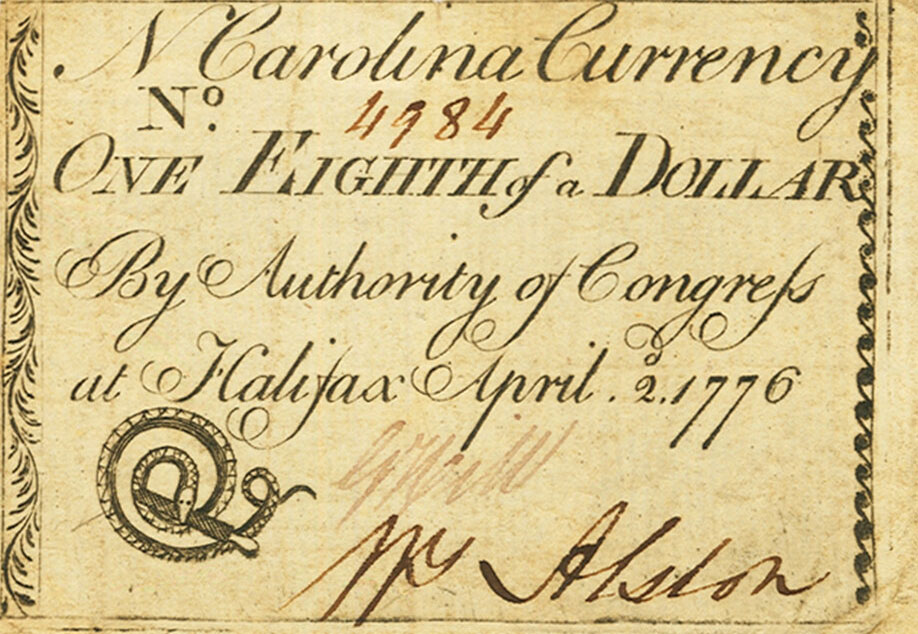 N Carolina Currency
Nº. 4984
ONE EIGHTH of a DOLLAR
By Authority of Congreſs
at Halifax April. 2ᵈ. 1776
Wᵐ Alston